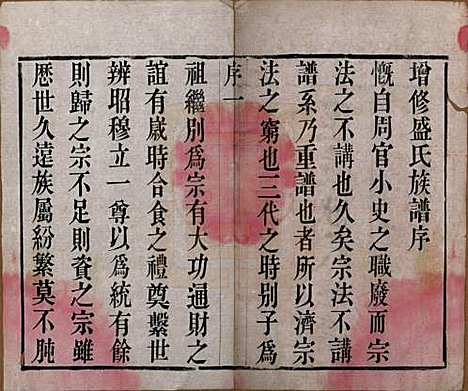 增修盛氏族譜序
慨自周官小史之職廢而宗
法之不講也久矣宗法不講
譜系乃重譜也者所以濟宗
法之窮也三代之時別子為
序一
祖繼別為宗有大功通財之
誼有嵗時合食之禮奠繫世
辨昭穆立一尊以為統有餘
則歸之宗不足則資之宗雖
厯世久遠族屬紛繁莫不肫